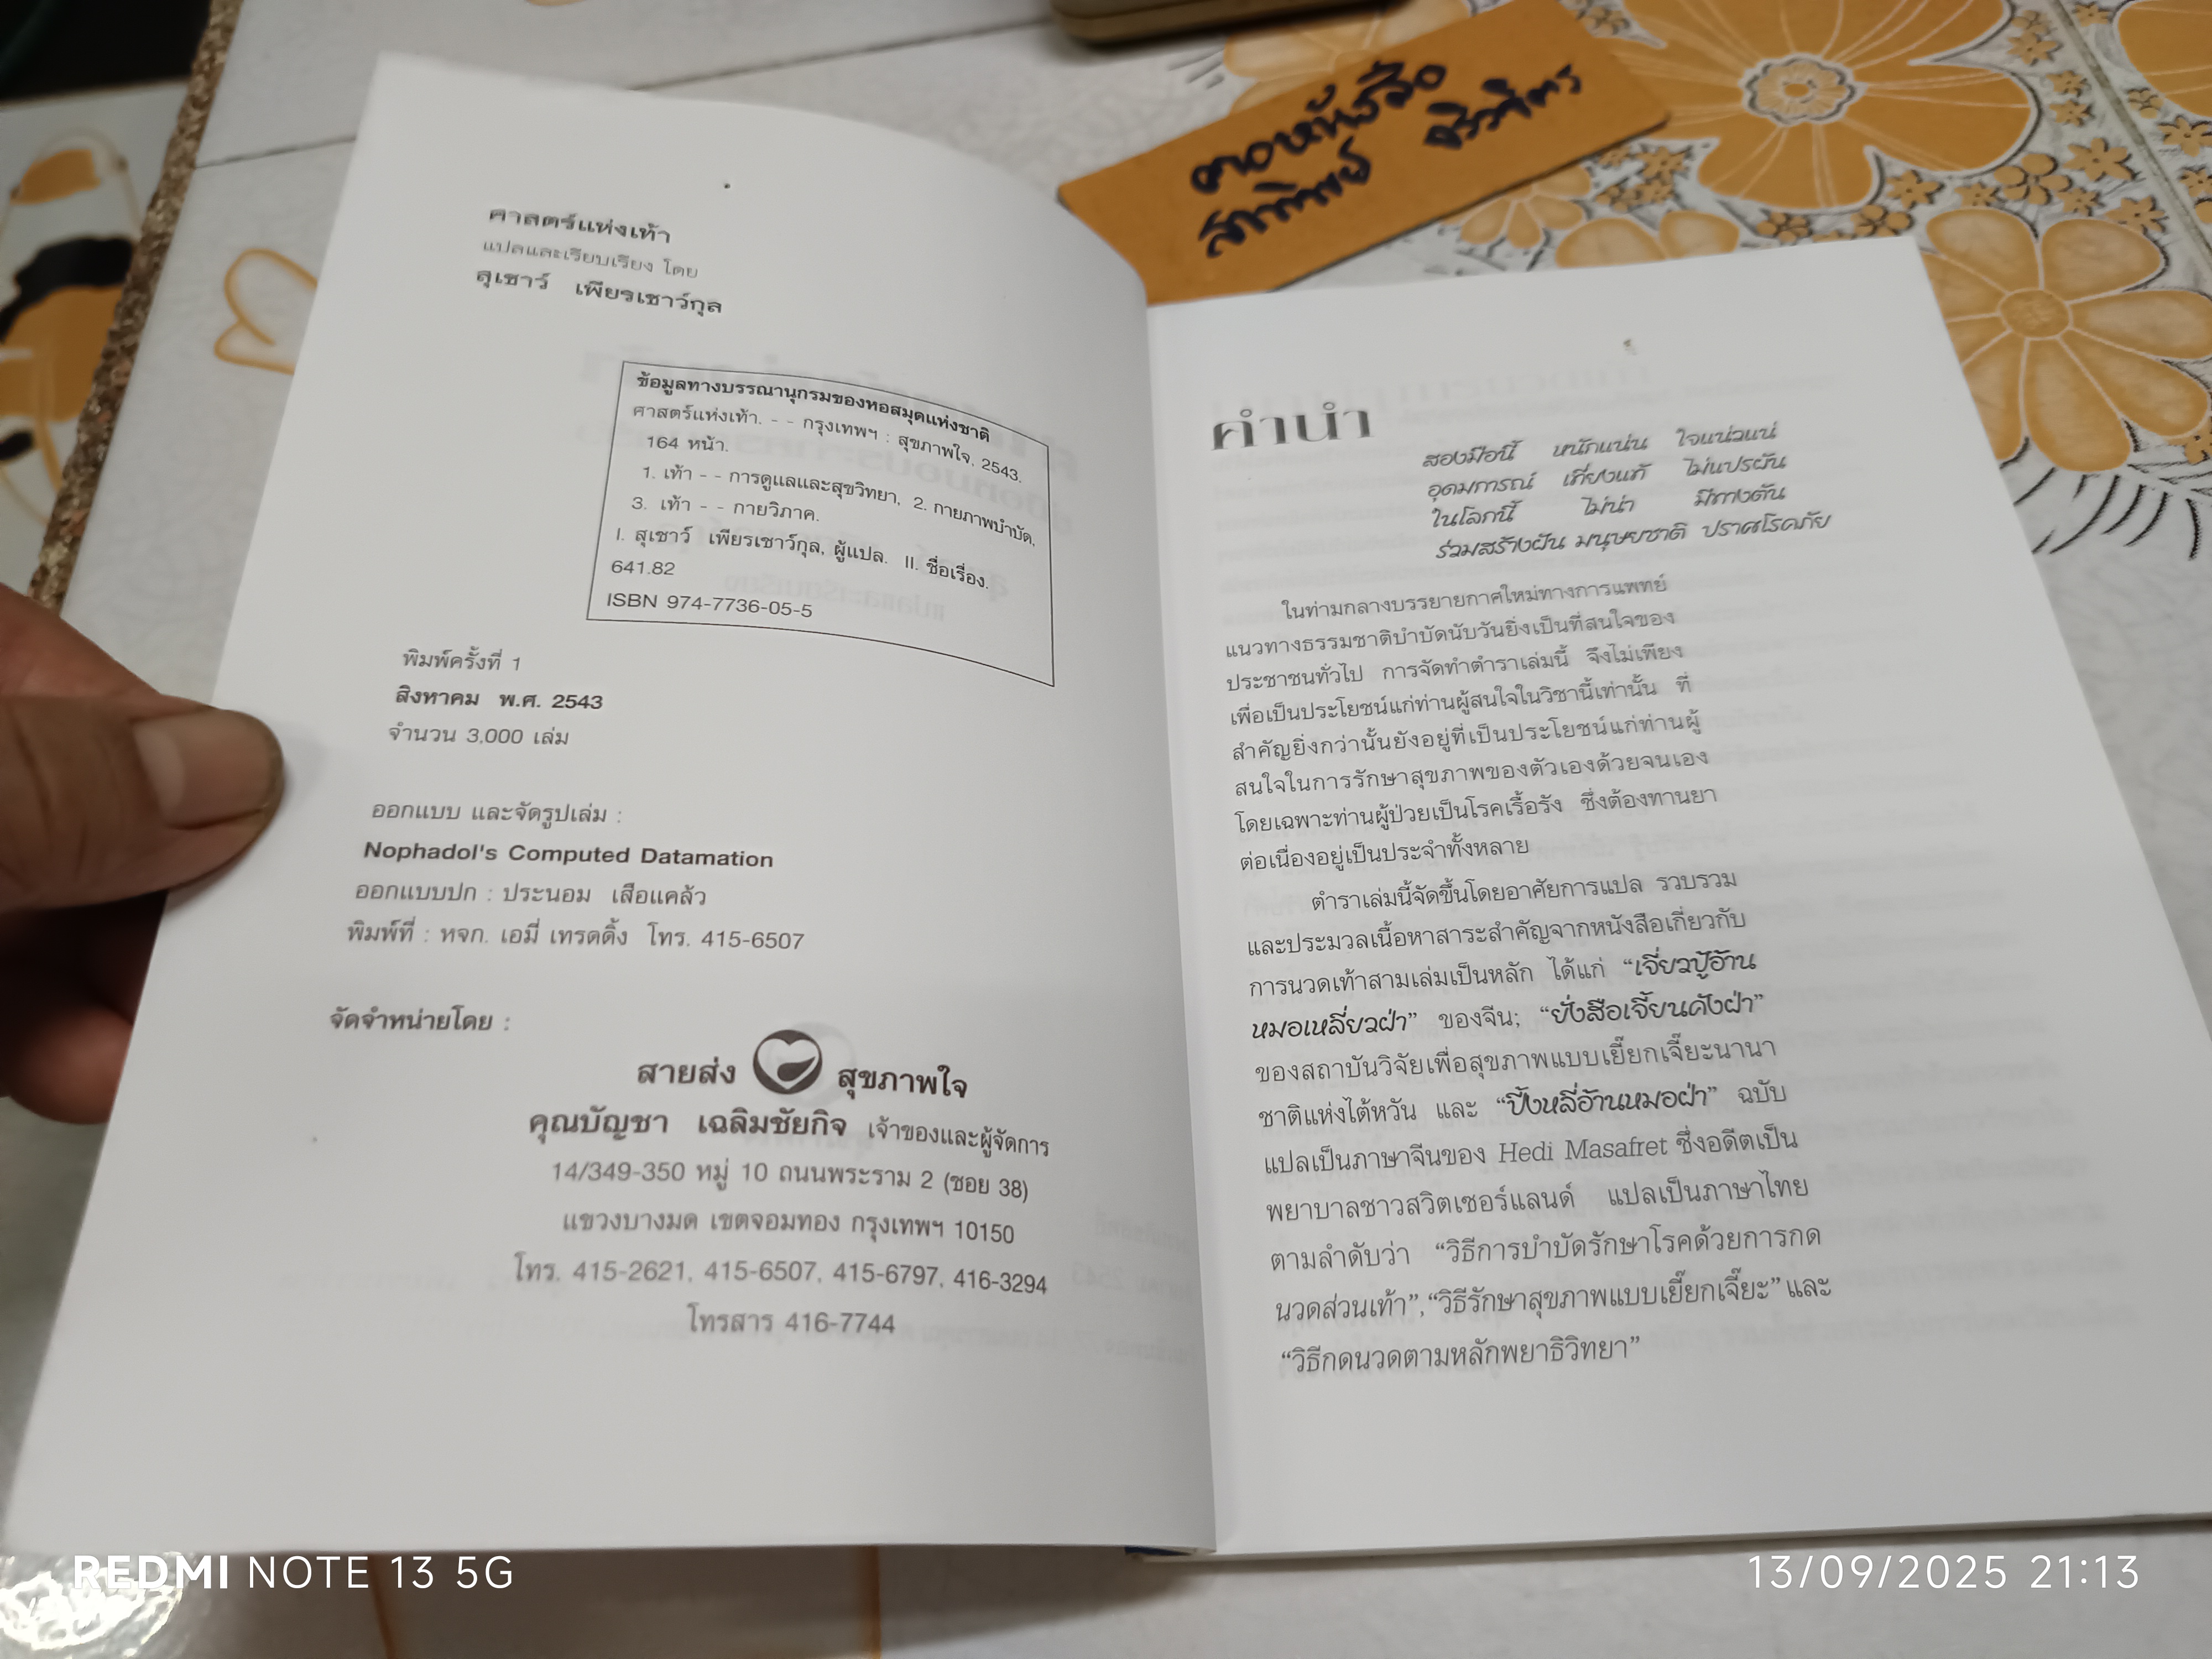 คอหนังสือ
สาทิพย์ ชีวพิตร
ศาสตร์แห่งเท้า
แปลและเรียบเรียง โดย
สุเชาว์ เพียรเชาว์กุล
ข้อมูลทางบรรณานุกรมของหอสมุดแห่งชาติ
ศาสตร์แห่งเท้า. - - กรุงเทพฯ : สุขภาพใจ, 2543.
164 หน้า.
1. เท้า - - การดูแลและสุขวิทยา, 2. กายภาพบำบัด,
3. เท้า - - กายวิภาค.
I. สุเชาว์ เพียรเชาว์กุล, ผู้แปล. II. ชื่อเรื่อง.
641.82
ISBN 974-7736-05-5
พิมพ์ครั้งที่ 1
สิงหาคม พ.ศ. 2543
จำนวน 3,000 เล่ม
ออกแบบ และจัดรูปเล่ม :
Nophadol's Computed Datamation
ออกแบบปก : ประนอม เสือแคล้ว
พิมพ์ที่ : หจก. เอมี่ เทรดดิ้ง โทร. 415-6507
จัดจำหน่ายโดย :
สายส่ง สุขภาพใจ
คุณบัญชา เฉลิมชัยกิจ เจ้าของและผู้จัดการ
14/349-350 หมู่ 10 ถนนพระราม 2 (ซอย 38)
แขวงบางมด เขตจอมทอง กรุงเทพฯ 10150
โทร. 415-2621, 415-6507, 415-6797, 416-3294
โทรสาร 416-7744
คำนำ
สองมือนี้ หนักแน่น ใจแน่วแน่
อุดมการณ์ เที่ยงแท้ ไม่แปรผัน
ในโลกนี้ ไม่น่า มีทางตัน
ร่วมสร้างฝัน มนุษยชาติ ปราศโรคภัย
ในท่ามกลางบรรยายกาศใหม่ทางการแพทย์
แนวทางธรรมชาติบำบัดนับวันยิ่งเป็นที่สนใจของ
ประชาชนทั่วไป การจัดทำตำราเล่มนี้ จึงไม่เพียง
เพื่อเป็นประโยชน์แก่ท่านผู้สนใจในวิชานี้เท่านั้น ที่
สำคัญยิ่งกว่านั้นยังอยู่ที่เป็นประโยชน์แก่ท่านผู้
สนใจในการรักษาสุขภาพของตัวเองด้วยจนเอง
โดยเฉพาะท่านผู้ป่วยเป็นโรคเรื้อรัง ซึ่งต้องทานยา
ต่อเนื่องอยู่เป็นประจำทั้งหลาย
ตำราเล่มนี้จัดขึ้นโดยอาศัยการแปล รวบรวม
และประมวลเนื้อหาสาระสำคัญจากหนังสือเกี่ยวกับ
การนวดเท้าสามเล่มเป็นหลัก ได้แก่ “เจี่ยวปู้อ้าน
หมอเหลี่ยวฝ่า” ของจีน; “ยั่งสือเจี้ยนคังฝ่า”
ของสถาบันวิจัยเพื่อสุขภาพแบบเยี๊ยกเจี๊ยะนานา
ชาติแห่งไต้หวัน และ “ปิ้งหลี่อ้านหมอฝ่า” ฉบับ
แปลเป็นภาษาจีนของ Hedi Masafret ซึ่งอดีตเป็น
พยาบาลชาวสวิตเซอร์แลนด์ แปลเป็นภาษาไทย
ตามลำดับว่า “วิธีการบำบัดรักษาโรคด้วยการกด
นวดส่วนเท้า”,“วิธีรักษาสุขภาพแบบเยี๊ยกเจี๊ยะ” และ
“วิธีกดนวดตามหลักพยาธิวิทยา”
REDMI NOTE 13 5G
13/09/2025 21:13